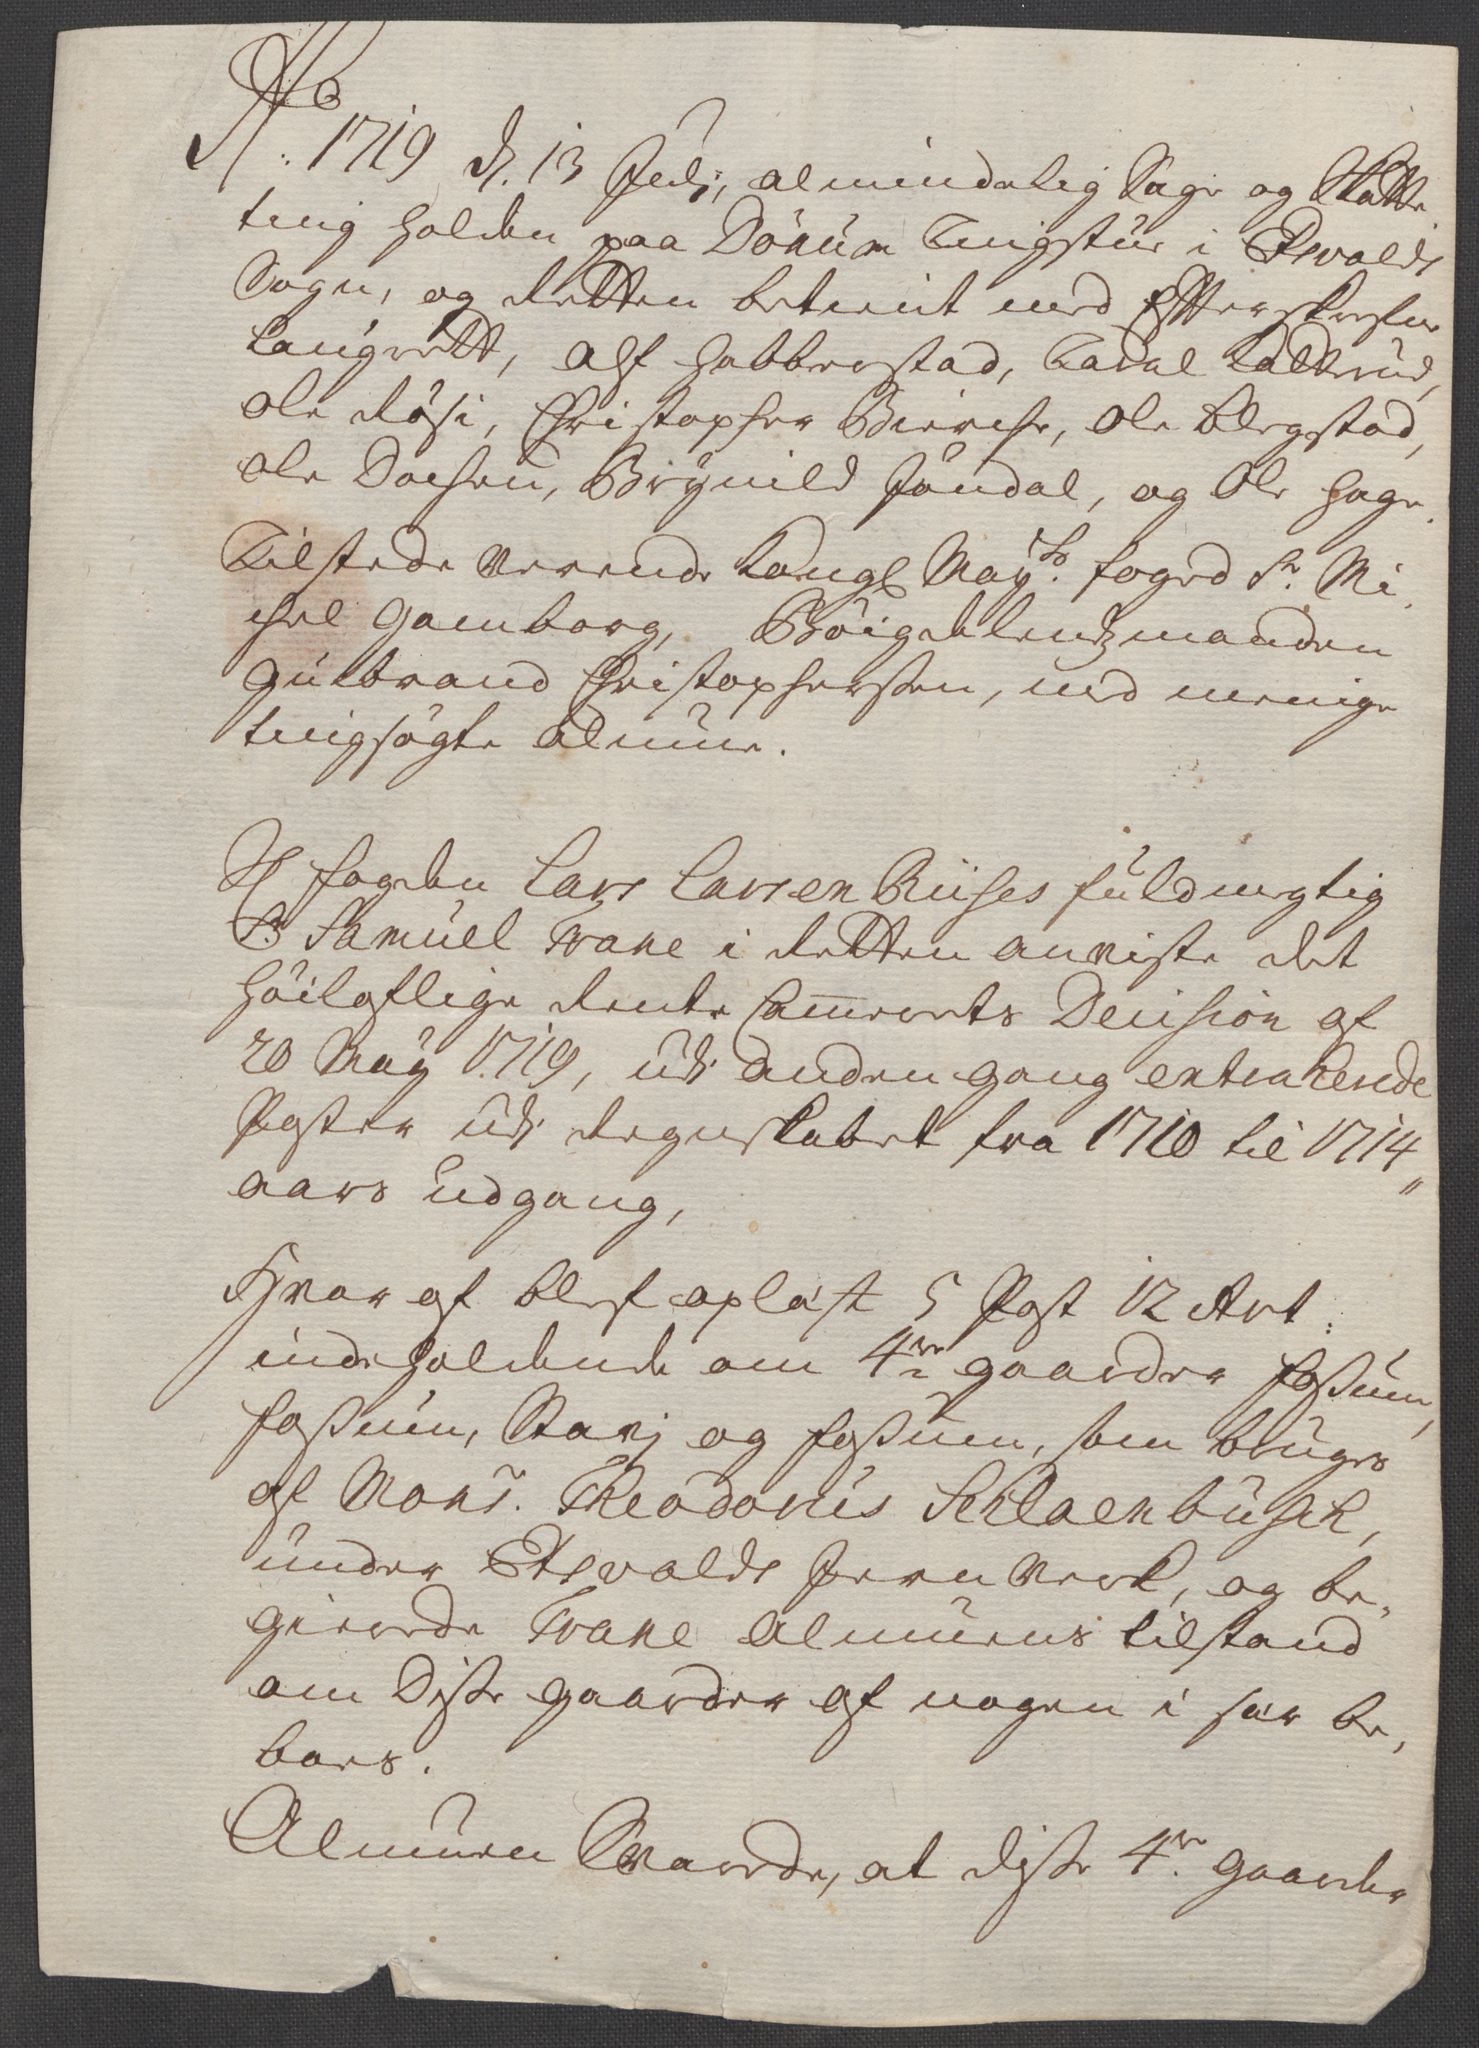 Ao. 1719 d. 13 Julj, almindelig Sage og Skatte
ting holden paa Dönüm Tingstüe i Edsvolds
Sogn, og Retten betient med Effterskrefne
Laugrett, Alf Habberstad, Tarvel Kaltterüd,
Ole Röise, Christopher Biercke, Ole Elegstad,
Ole Dochen, Brÿnild Jöndal, og Ole Hage.
Tilstede verende Kongl Mayts. foged Sr. Mi,
chel Gamborg, Böigdelendsmanden
Gülbrand Christophersen, med menige
tingsögte Almüe.
Hr fogden Lars Larsen Riises füldmegtig
Sr Samüel Trane i Retten anviste det
höiloflige Rente Cammerets Decision af
20 May 1719, üdj anden gang extraherede
Poster üdj Regnskabet fra 1710 til 1714
aars Udgang,
Hvor af blef oplæst 5 Post 12 Art:
indeholdende om 4re gaarder Fossüm,
Fossüm, Starj og Fossüm, som brüges
af Monsr. Theodorüs Schlaenbüsch,
ünder Edsvolds Jern Verck, og be,
gierede Trane Almüens tilstand
om Disse gaarder af nogen i sær be,
boes.
Almüen Svarede, at disse 4re gaarder